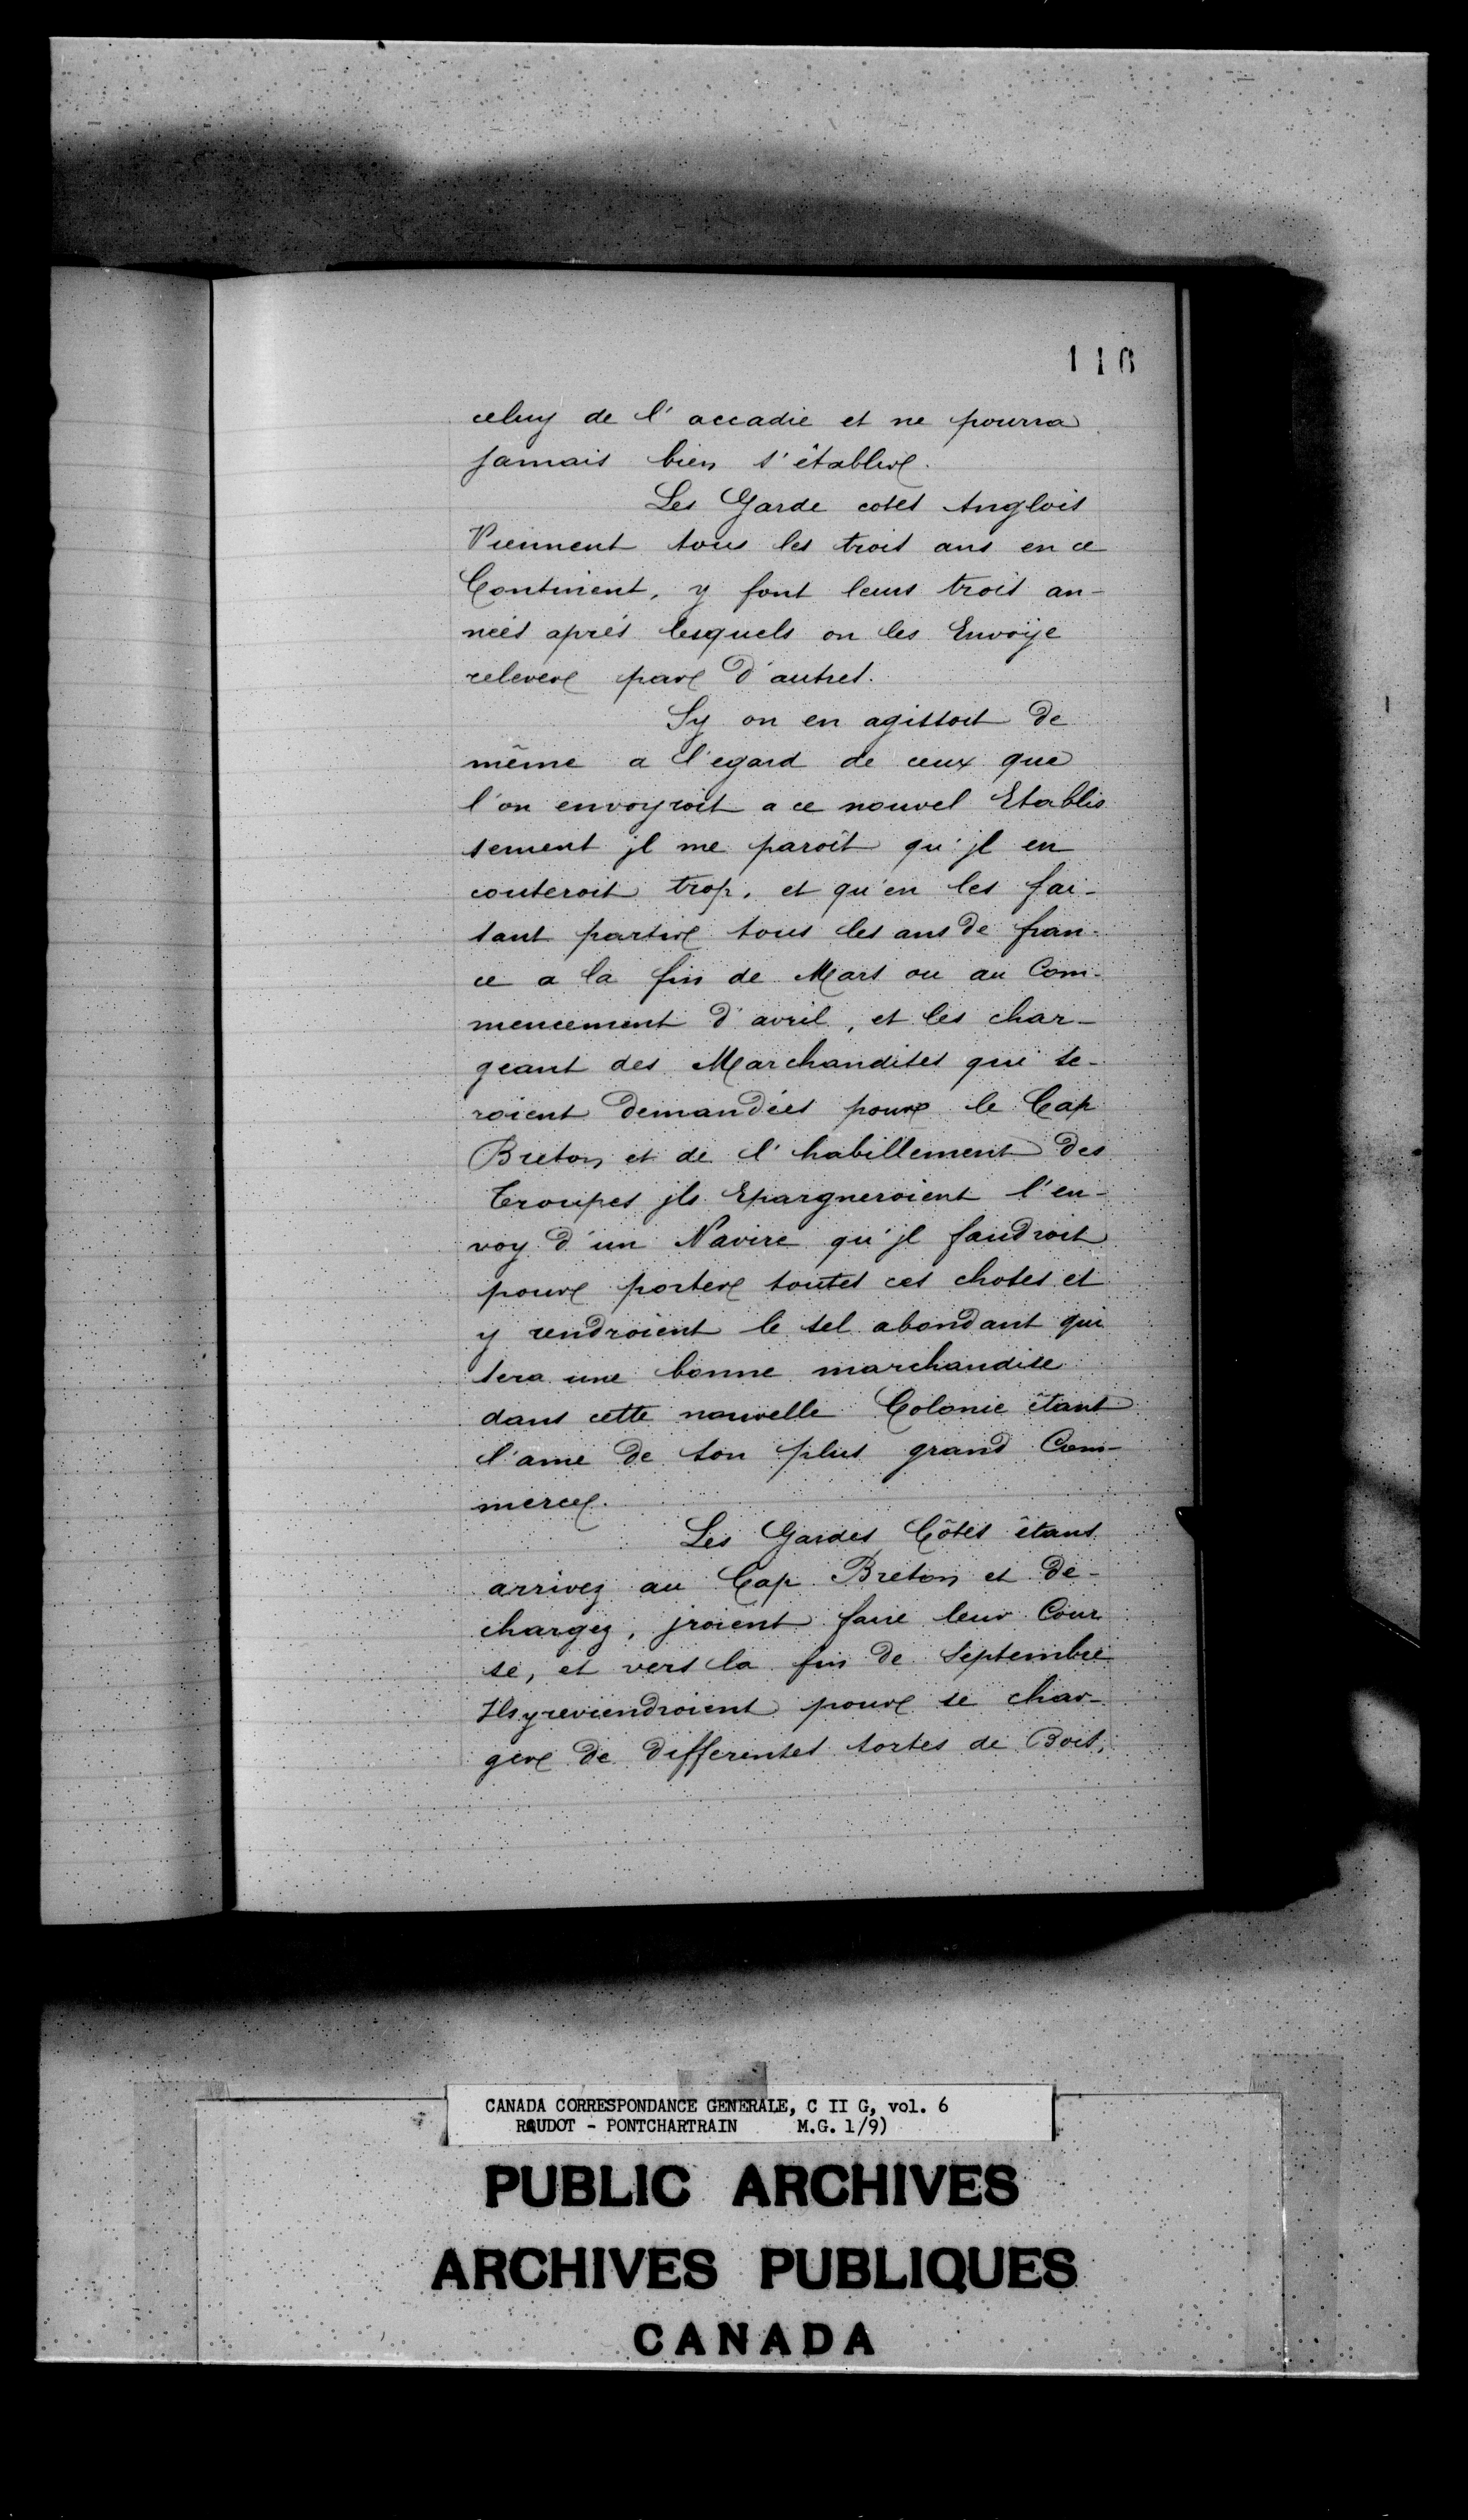 116
celuy de l'accadie et ne pourra
Jamais bien s'établir.
Les Garde costes Anglois
Viennent tous les trois ans en ce
Continent, y font leurs trois an-
neés aprés lesquels on les Envoÿe
relever par d'autres.
Sy on en agissoit de
même a l'egard de ceux que
l'on envoyroit a ce nouvel Etablis
sement jl me paroît qu'jl en
couteroit trop, et qu'en les fai-
sant partir tous les ans de fran-
ce a la fin de Mars ou au Com-
mencement d'avril, et les char-
geant des Marchandises qui se-
roient demandées pour le Cap
Breton et de l'habillement des
Troupes jls Epargneroient l'en-
voy d'un Navire qu'jl faudroit
pour porter toutes ces choses et
y rendroient le sel abondant qui
sera une bonne marchandise
dans cette nouvelle Colonie étant
l'ame de son plus grand Com-
merce.
Les Gardes Côtes étans
arrivez au Cap Breton et de-
chargez, jroient faire leur Cour
se, et vers la fin de Septembre
Ils y reviendroient pour se char-
ger de differentes sortes de Bois,
CANADA CORRESPONDANCE GENERALE, C II G, vol. 6
RAUDOT - PONTCHARTRAIN M.G. 1/9)
PUBLIC ARCHIVES
ARCHIVES PUBLIQUES
CANADA